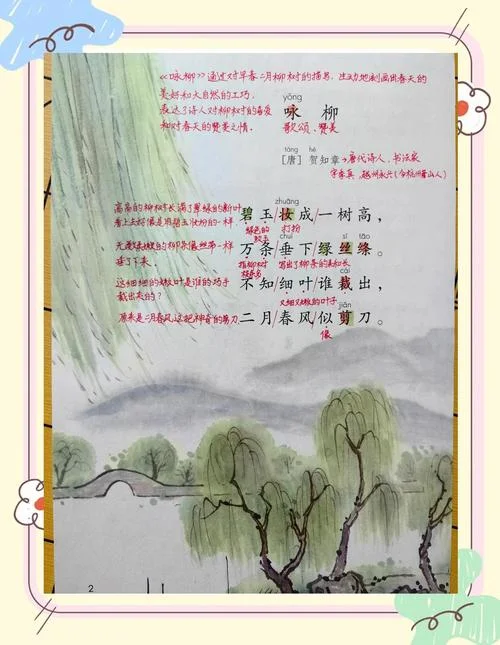 《咏柳》通过对早春二月柳树的描写,生动地刻画出春天的
美好和大自然的工巧,
表达了诗人对柳树的喜爱
和对春天的赞美之情。
yǒng
咏 柳
歌颂、赞美
táng hè
[唐] 贺知章→唐代诗人,书法家
字季真,越州永兴(今杭州萧山人)
高高的柳树长满了翠绿的新叶
看上去好像是用碧玉妆扮的一样。
zhuāng
碧玉/妆成/一树高,
绿色的
打扮
无数柔嫩的柳条像丝带一样
垂了下来
chuí sī tāo
万条/垂下/绿丝绦。
指柳树
写出了柳条的柔和长
这细细的嫩叶是谁的巧手
裁出来的?
cái
不知/细叶/谁裁出,
又细又嫩的叶子
原来是二月春风,这把神奇的剪刀
jiǎn
二月/春风/似剪刀。
像
2